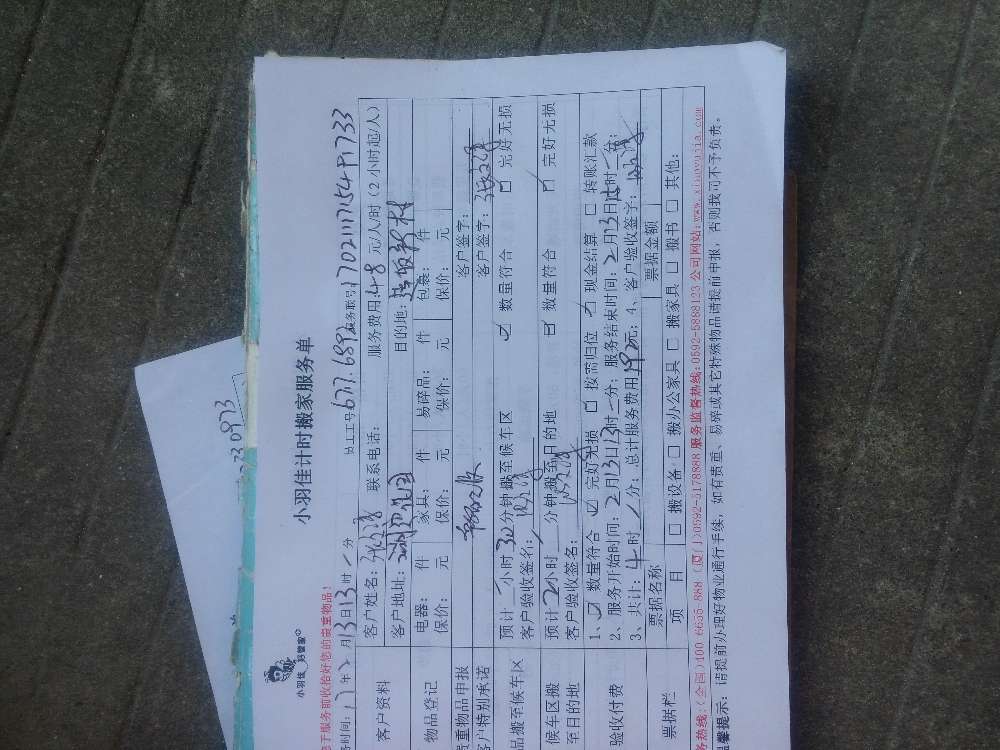 小羽佳 好管家
小羽佳计时搬家服务单
于服务前收拾好您的贵重物品!
务时间: 17年2月13日13时/分 员工工号677.689 服务账号1702111754P1733
客户资料 客户姓名: 联系电话: 服务费用:48元/人/时(2小时起/人)
客户地址: 目的地:
物品登记 电器: 件 家具: 件 易碎品: 件 包裹: 件
保价: 元 保价: 元 保价: 元 保价: 元
贵重物品申报 客户签字:
客户特别承诺 客户签字:
品搬至候车区 预计/小时30分钟搬至候车区 ☑ 数量符合 □ 完好无损
客户验收签名:
候车区搬至目的地 预计2小时/分钟搬至目的地 数量符合 完好无损
客户验收签名:
验收付费 1、☑ 数量符合 ☑ 完好无损 □ 按需归位 ☑ 现金结算 □ 转账汇款
2、服务开始时间:2月13日13时/分; 服务结束时间:2月13日 时 分;
3、共计:4时/分; 总计服务费用192元; 4、客户验收签字:
票据栏 票据名称 票据金额
项 目 □ 搬设备 □ 搬办公家具 □ 搬家具 □ 搬书 □ 其他:
务热线:(全国)400-6655-888 (厦门)0592-5178888 服务监督热线:0592-5888123 公司网站:www.xiaoyujia.com
温馨提示: 请提前办理好物业通行手续, 如有贵重、易碎或其它特殊物品请提前申报, 否则我司不予负责。